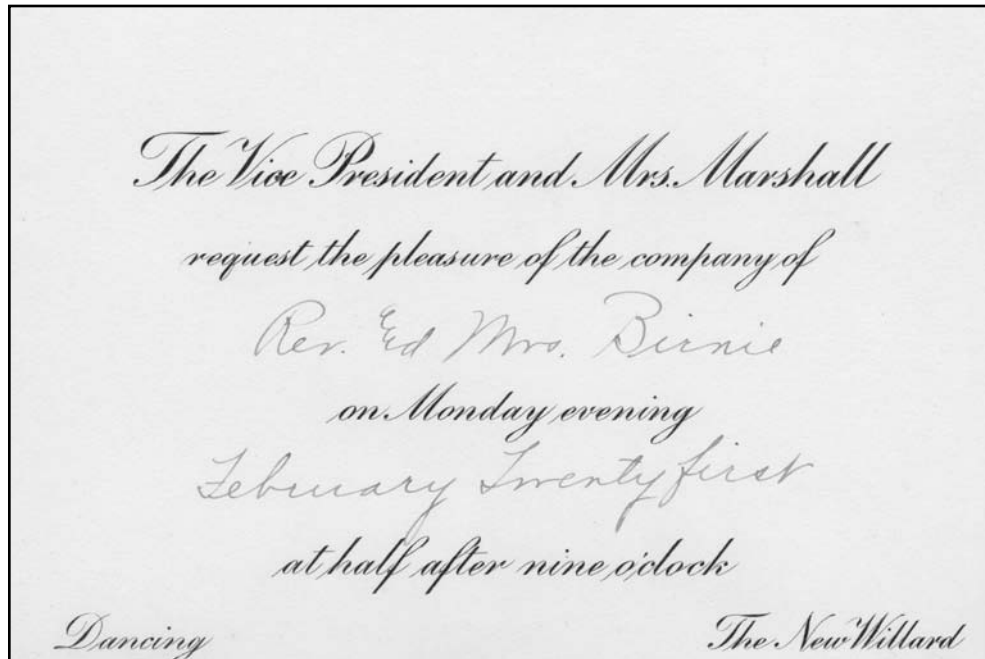 The Vice President and Mrs. Marshall
request the pleasure of the company of
Rev. Ed Mrs. Birnie
on Monday evening
February Twenty first
at half after nine o'clock
Dancing The New Willard